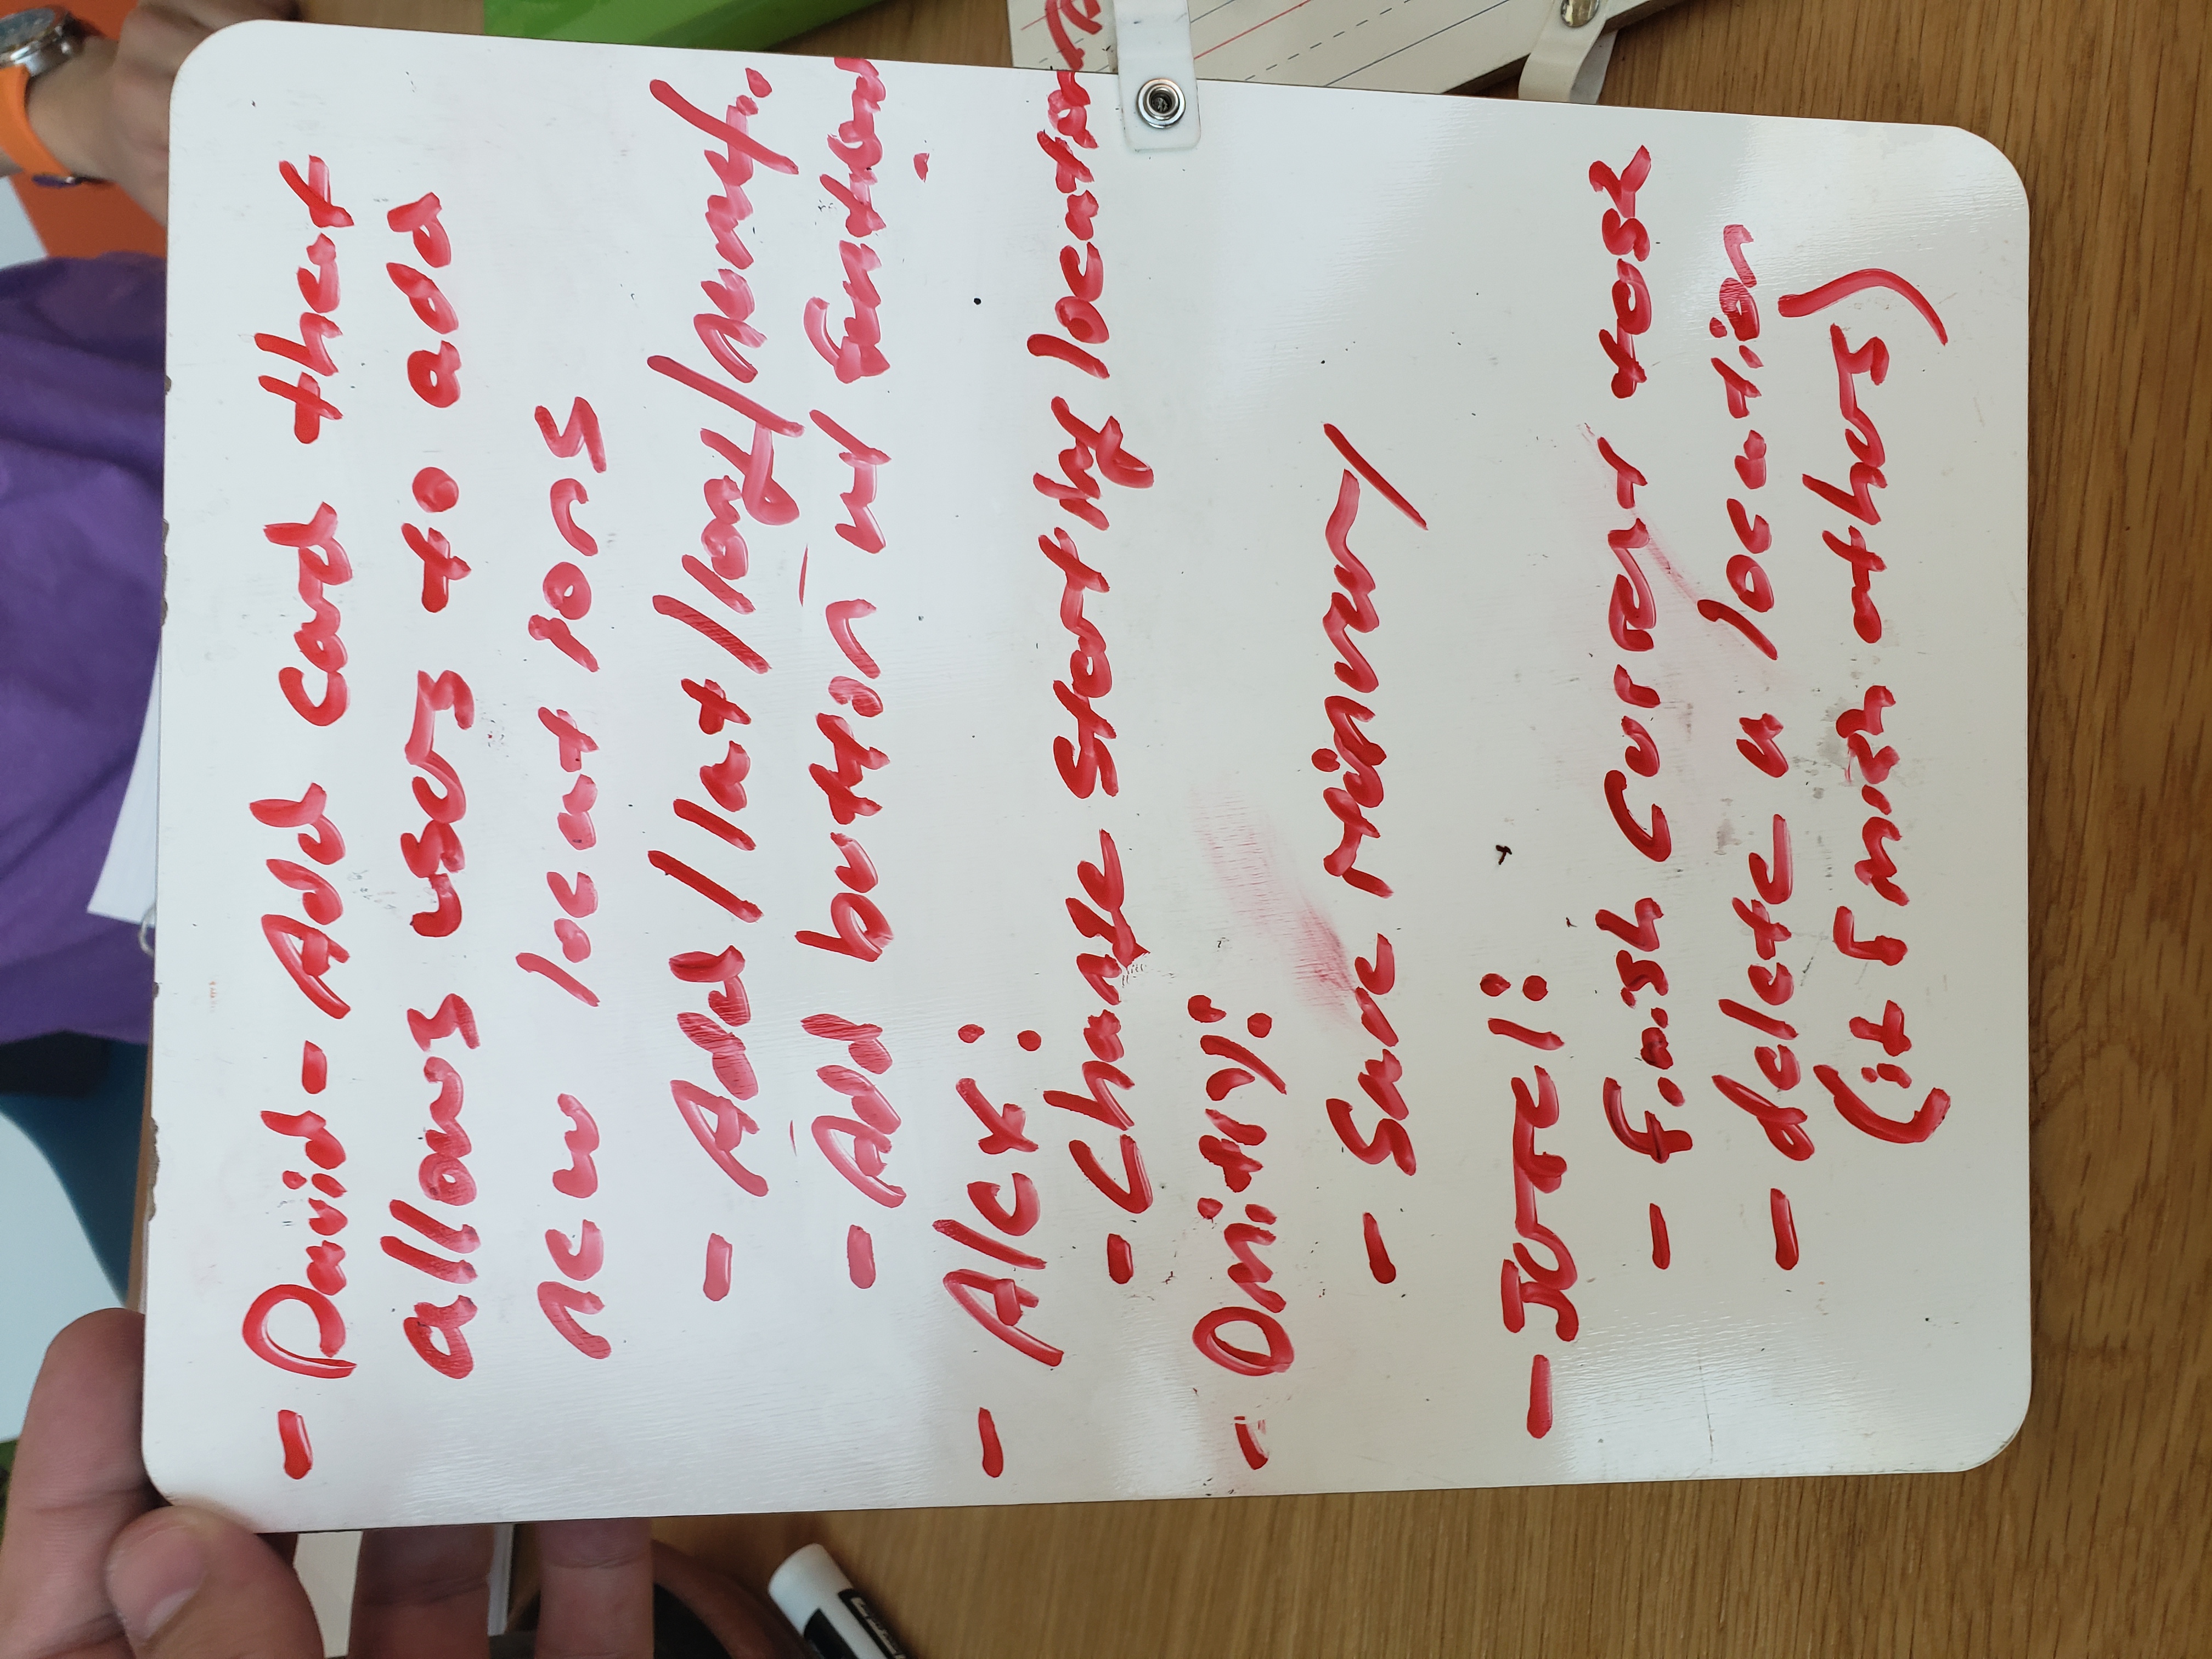 - David - Add card that
allows users to add
new locations
- Add / lat / long / name / ..
- Add button w/
- Alex:
- Change starting location
- Dmitry:
- Save itinerary
- Jorel:
- finish current task
- delete a location
(if finish others)